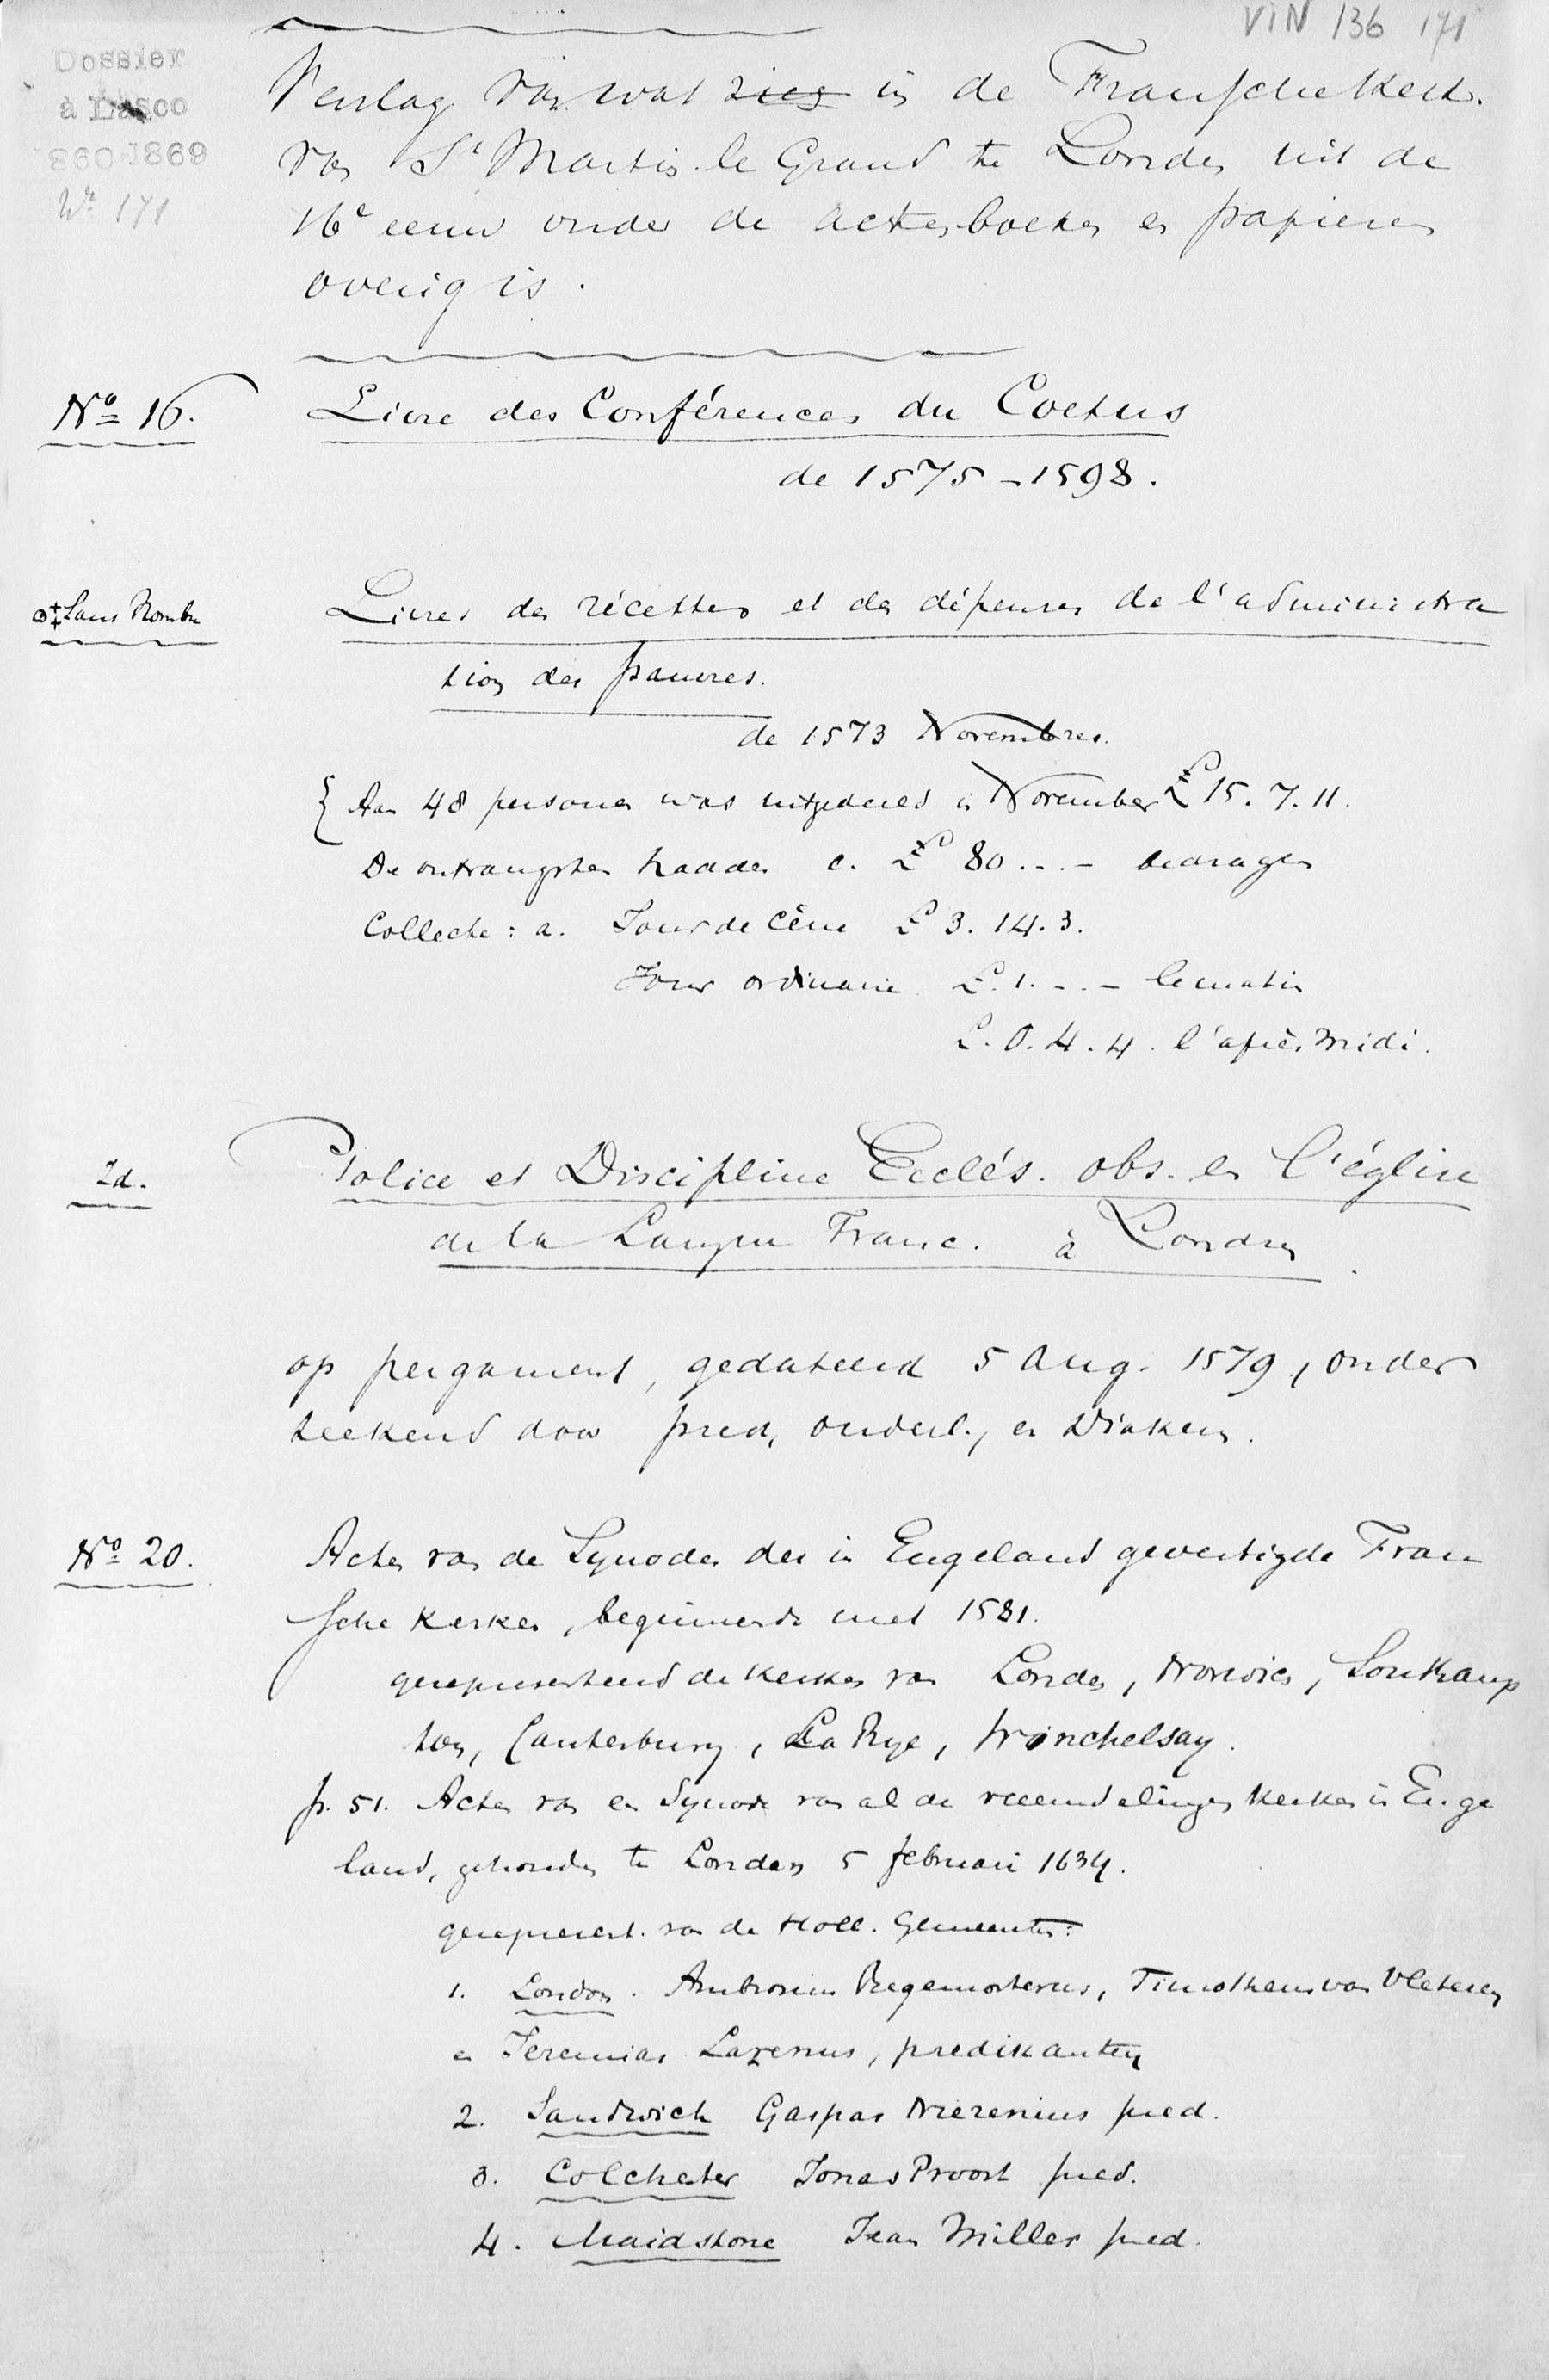 VIN 136 171
Dossier
à Lasco
860-1869
Nr. 171
Verslag van wat zich in de Fransche Kerk.
van St Martin le Grand te Londen uit de
16e eeuw onder de actenboeken en papieren
overig is.
No 16. Livre des Conférences du Coetus
de 1575-1598.
Sans Nombre Livres des récettes et des dépenses de l'administra
tion des pauvres.
de 1573 Novembres.
Aan 48 personen was uitgedeeld in November £ 15. 7. 11.
De ontvangsten hadden c. £ 80 . - . - bedragen
Collecte : a. Jour de Cêne £ 3. 14. 3.
Jour ordinaire £. 1. - . - le matin
£. 0. 4. 4. l'après midi.
Id. Police et Discipline Ecclés. obs. en l'église
de la Langue Franc. à Londres
op pergament, gedateerd 5 Aug. 1579, onder
teekend door pred, ouderl., en Diakens.
No 20. Acten van de Synoden der in Engeland gevestigde Fran
sche Kerken, beginnende met 1581.
gerepresenteerd de kerken van Londen, Norwich, Southamp
ton, Canterbury, La Rye, Winchelsay.
p. 51. Acten van en Synode van al de vreemdelingen Kerken in Enge
land, gehouden te Londen 5 februari 1634.
gerepresent. van de Holl. Gemeenten:
1. London. Ambrosius Regemorterus, Timotheus van Vleteren
en Jeremias Lazenus, predikanten
2. Sandwich Gaspar Nierenius pred.
3. Colchester Jonas Proost pred.
4. Maidstone Jean Miller pred.